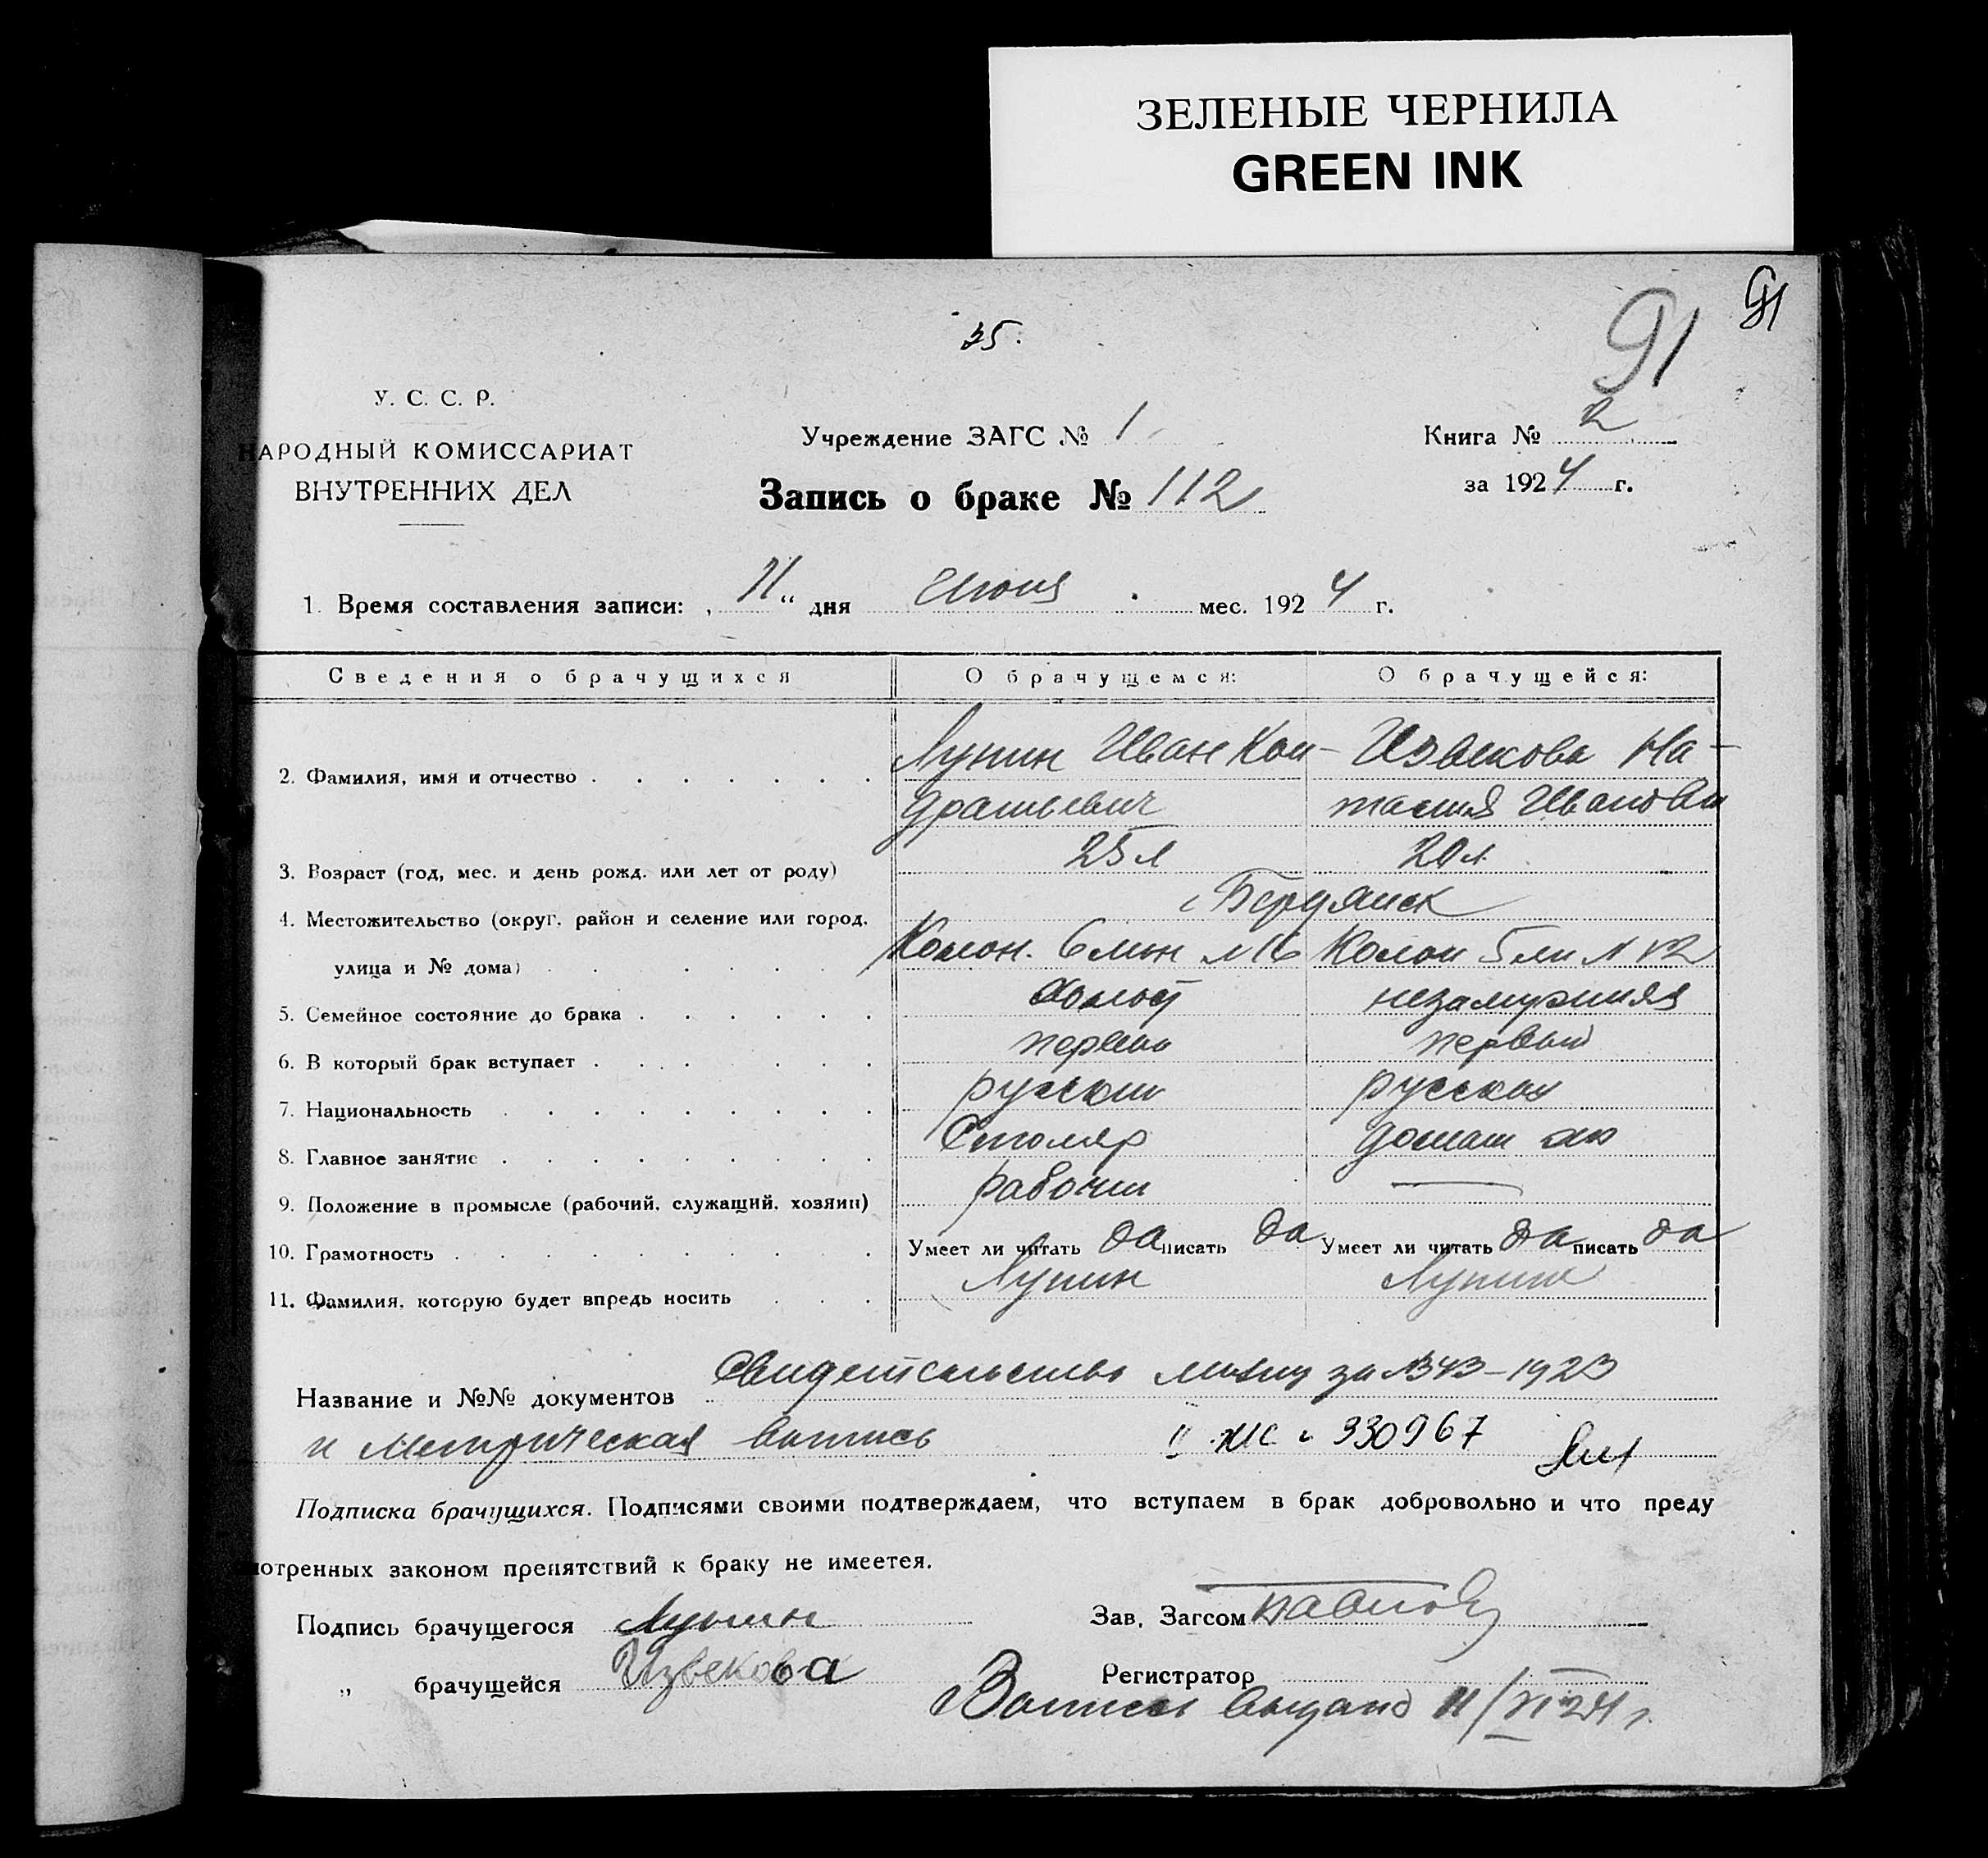 ЗЕЛЕНЫЕ ЧЕРНИЛА
GREEN INK
91
91
35.
У. С. С. Р.
НАРОДНЫЙ КОМИССАРИАТ
ВНУТРЕННИХ ДЕЛ
Учреждение ЗАГС № 1
Запись о браке № 112
Книга № 2
за 1924 г.
1. Время составления записи: „11“ дня Июня мес. 1924 г.
Сведения о брачущихся О брачущемся: О брачущейся:
2. Фамилия, имя и отчество Лунин Иван Кон- Извекова На-
дратьевич талия Ивановн
3. Возраст (год, мес. и день рожд. или лет от роду) 25 л 20 л.
4. Местожительство (округ, район и селение или город, г. Бердянск
улица и № дома) Колон. 6 лин N 16 Колон 5 лин N 12
5. Семейное состояние до брака холост незамужняя
6. В который брак вступает первый первый
7. Национальность русский русская
8. Главное занятие Столяр домаш хоз
9. Положение в промысле (рабочий, служащий, хозяин) рабочий —
10. Грамотность Умеет ли читать да писать да Умеет ли читать да писать да
11. Фамилия, которую будет впредь носить Лунин Лунина
Название и №№ документов Свидетельство за N 343-1923
и Метрическая выпись II ЖС 330967
Подписка брачущихся. Подписями своими подтверждаем, что вступаем в брак добровольно и что преду
мотренных законом препятствий к браку не имеется.
Подпись брачущегося Лунин Зав. Загсом
„ брачущейся Извекова Регистратор
Выпись выдана 11/VI 24 г.